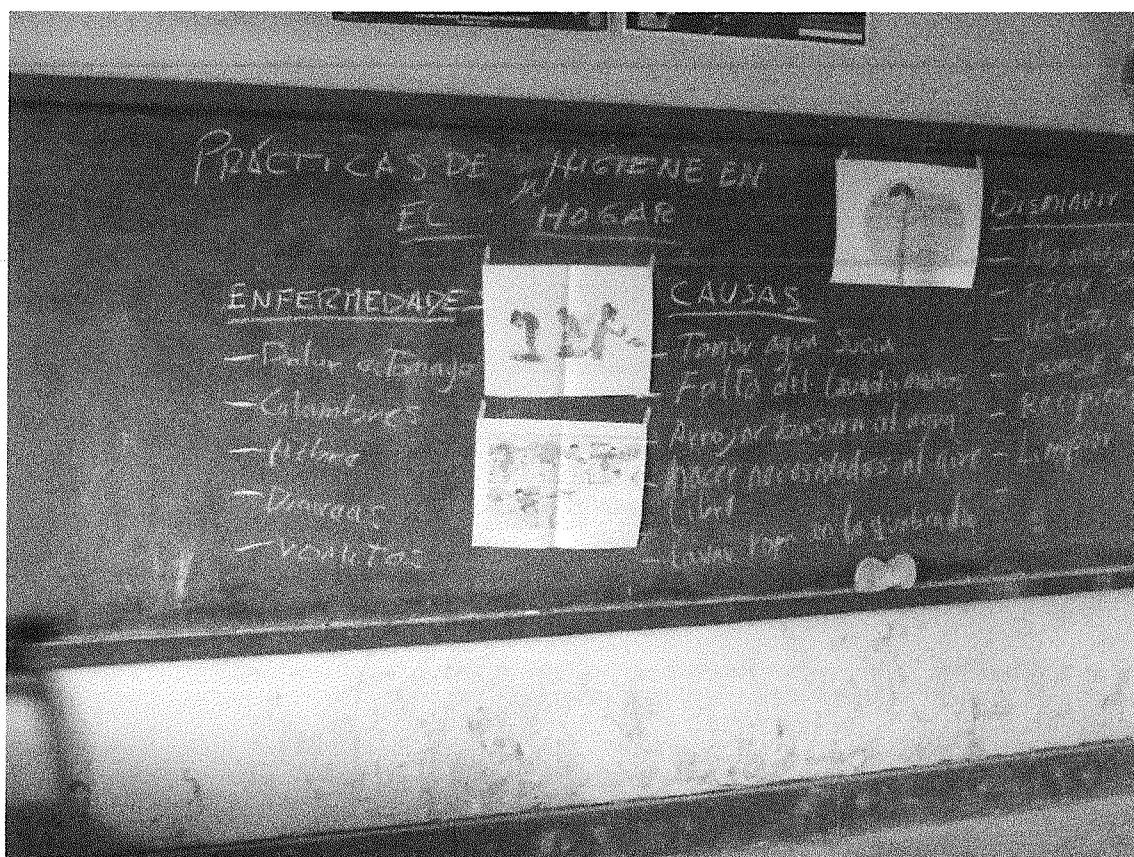 PRÁCTICAS DE HIGIENE EN
EL HOGAR
ENFERMEDADE
- Dolor estomago
- Calambres
- Fiebre
- Diarreas
- VOMITOS
CAUSAS
- Tomar agua sucia
- Falta del lavado manos
- Arrojar basura al agua
- Hacer necesidades al aire
Libre
- Lavar ropa en la quebrada
DISMINUIR
- Recipien
- Limpiar